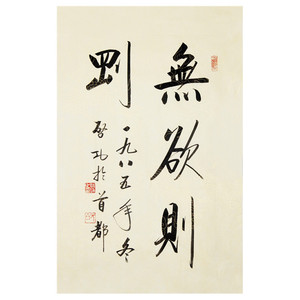 無欲則
剛
一九八五年冬
啓功於首都